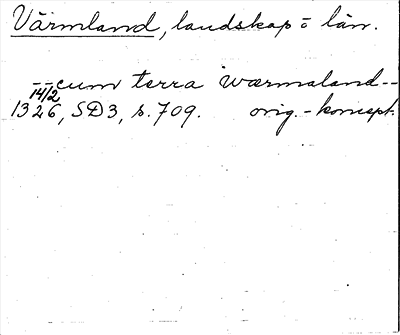 Värmland, landskap o län.
-- cum terra wærmaland --
14/2
1326, SD3, s. 709. orig. - koncept.